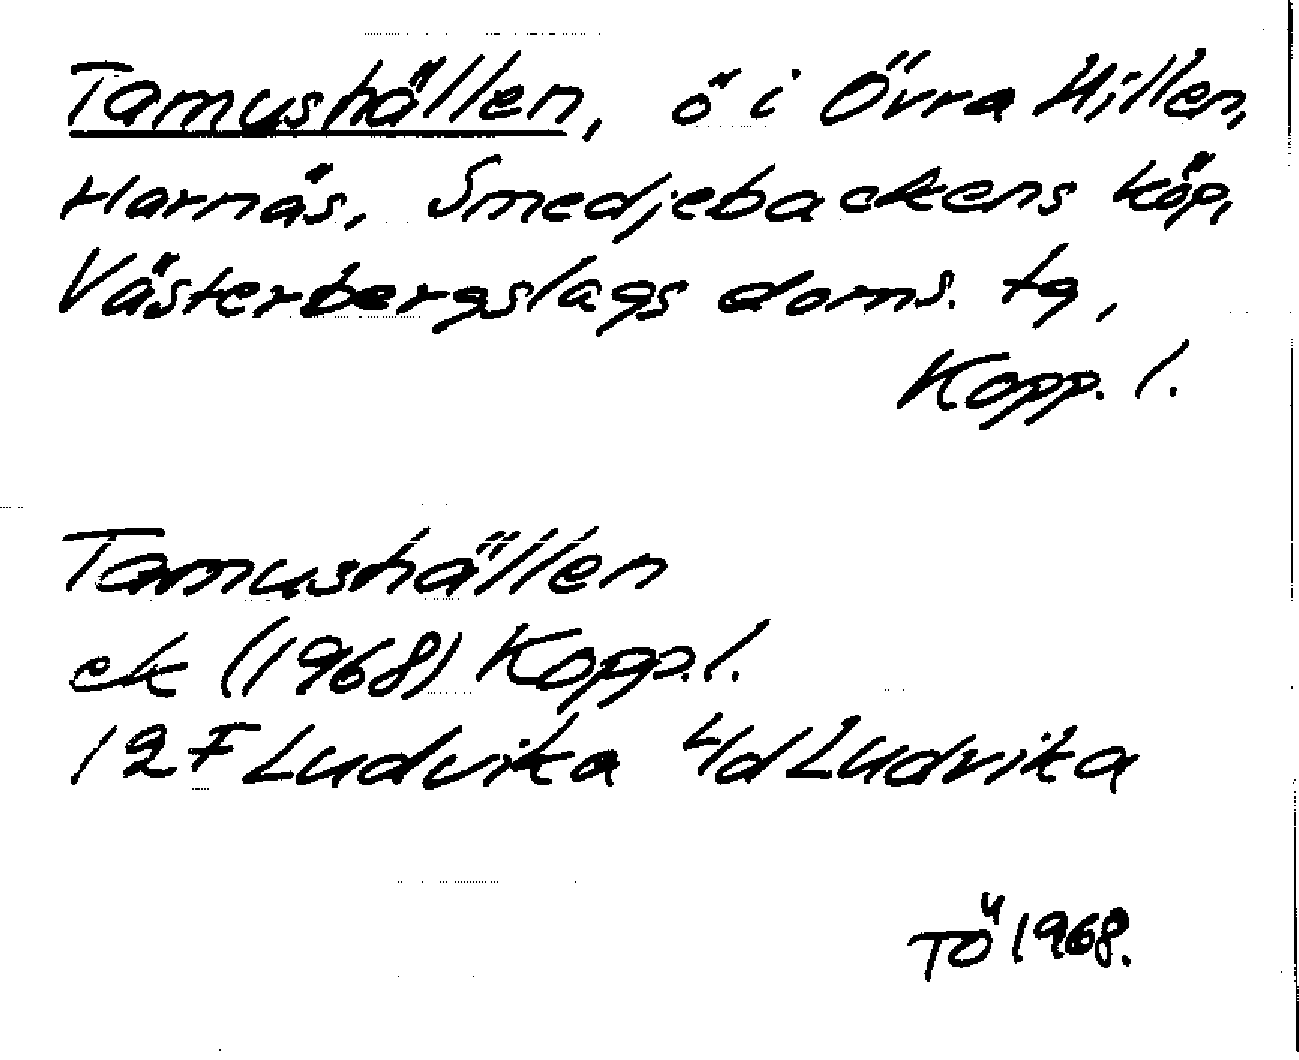 Tamushällen, ö i Övra Hillen,
Harnäs, Smedjebackens köp,
Västerbergslags doms. tg,
Kopp. l.
Tamushällen
ek (1968) Kopp. l.
12F Ludvika 4d Ludvika
TÖ 1968.